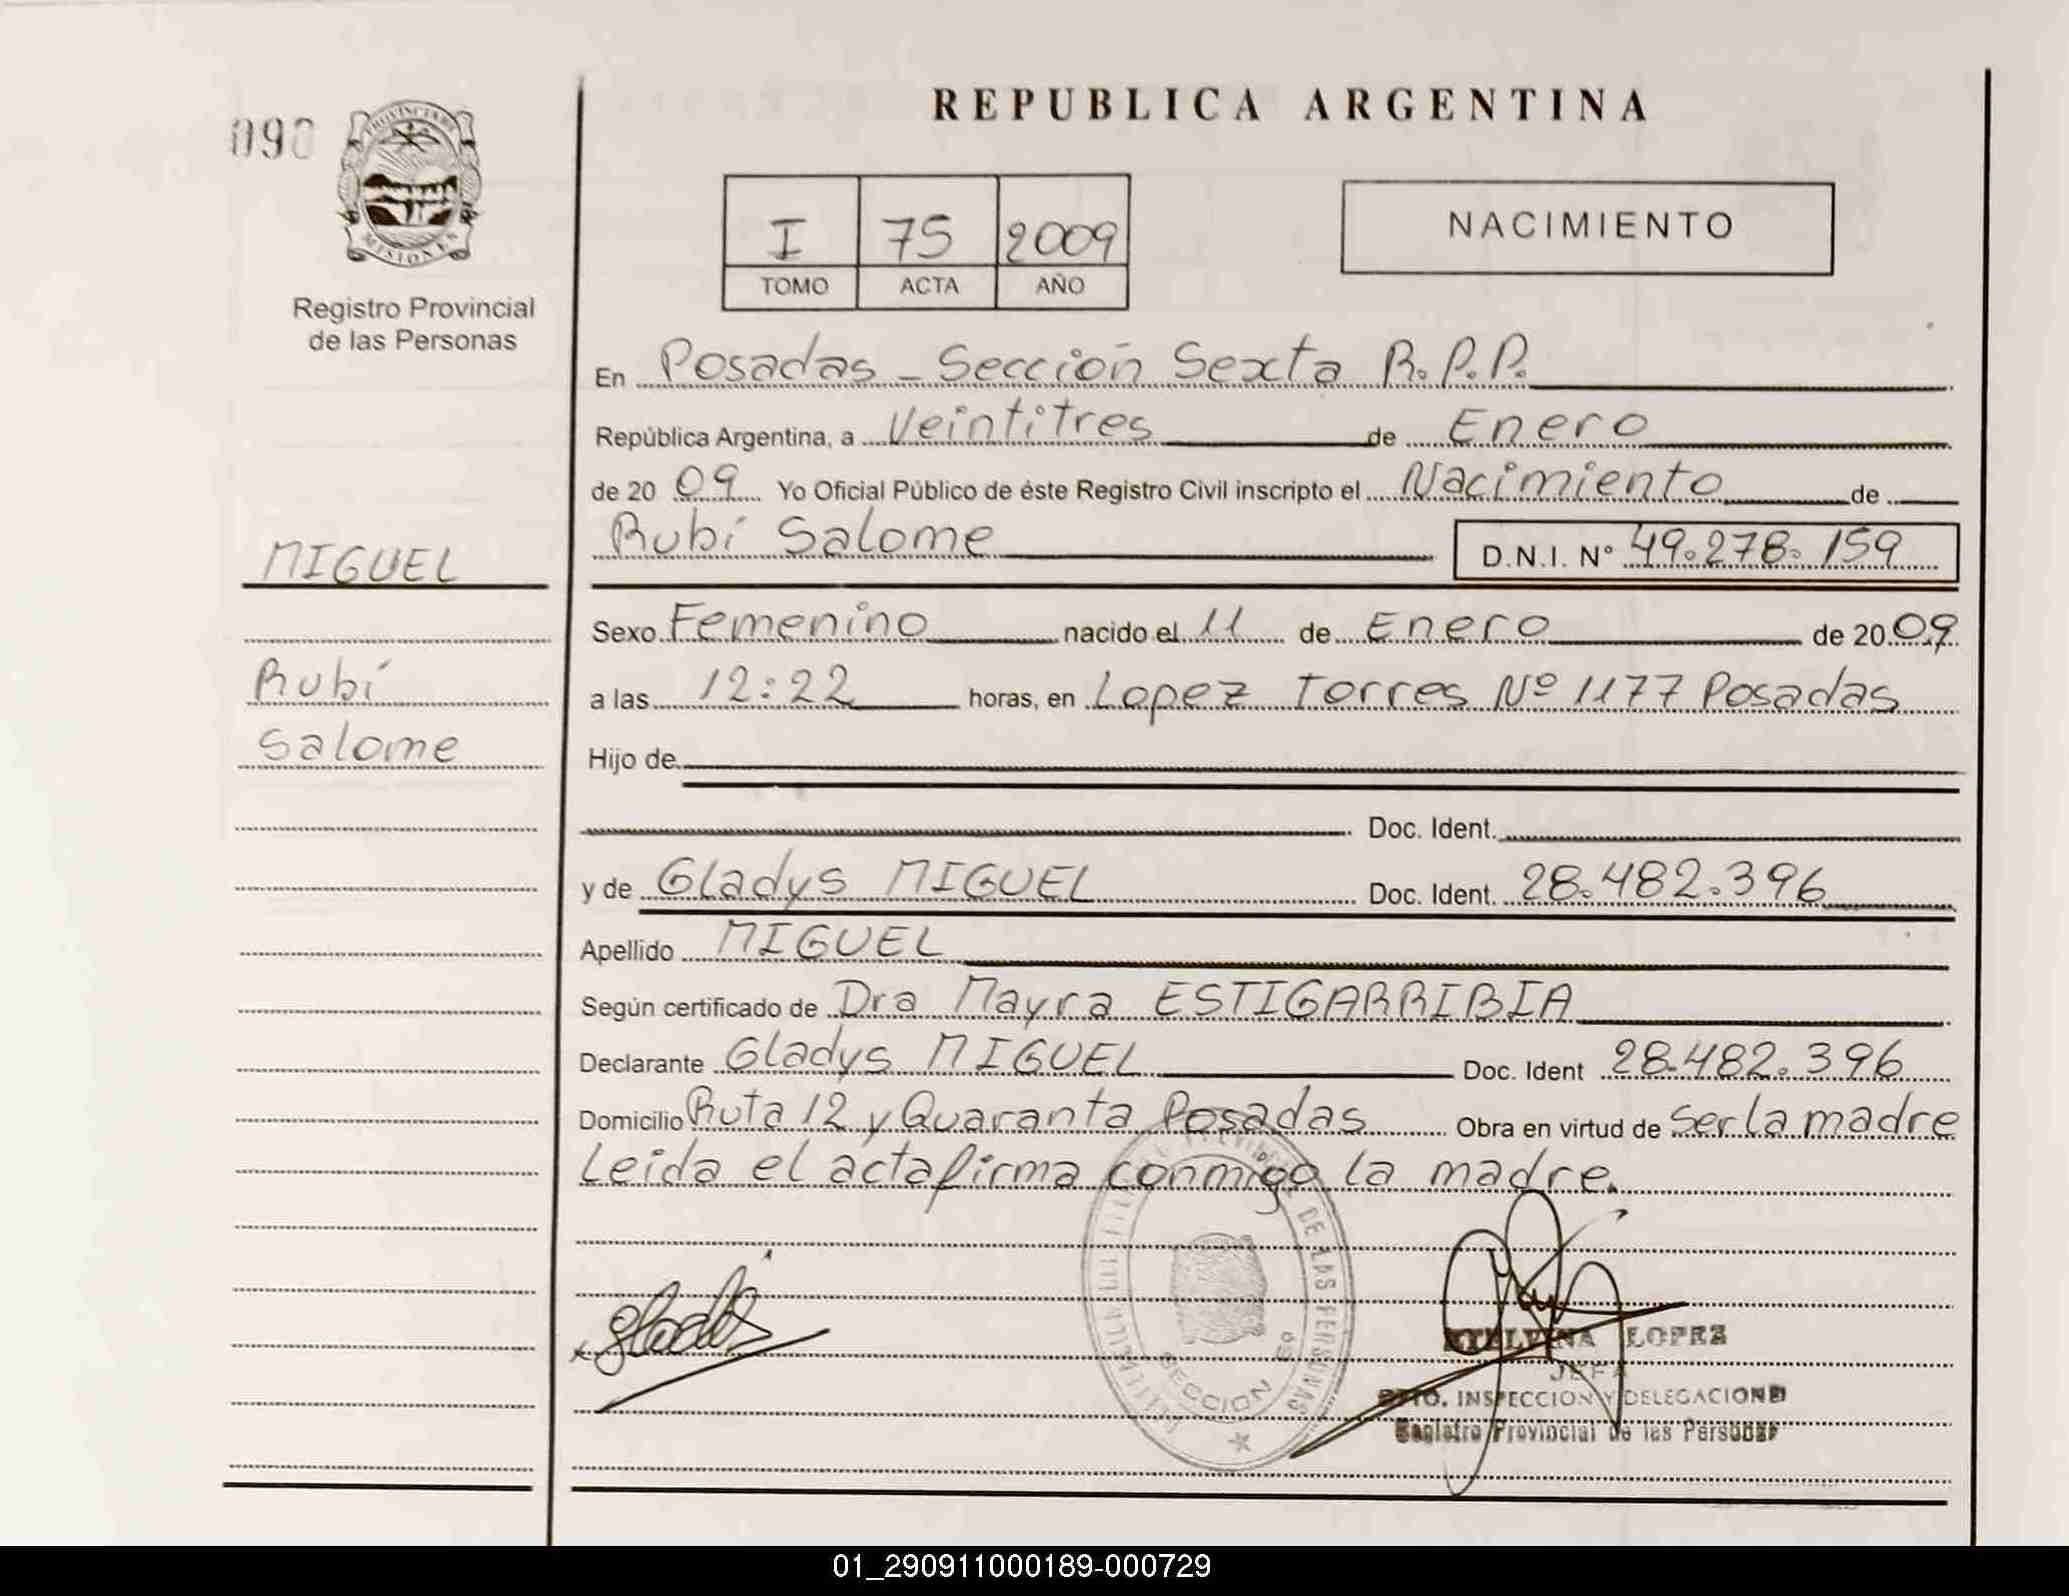 REPUBLICA ARGENTINA
090
PROVINCIA DE
MISIONES
Registro Provincial
de las Personas
I 75 2009
TOMO ACTA AÑO
NACIMIENTO
En Posadas - Sección Sexta R.P.P.
República Argentina, a Veintitres de Enero
de 20 09 Yo Oficial Público de éste Registro Civil inscripto el Nacimiento de
Rubí Salome D.N.I. Nº 49.278.159
MIGUEL
Rubí
Salome
Sexo Femenino nacido el 11 de Enero de 20 09
a las 12:22 horas, en Lopez Torres Nº 1177 Posadas
Hijo de
Doc. Ident.
y de Gladys MIGUEL Doc. Ident. 28.482.396
Apellido MIGUEL
Según certificado de Dra Mayra ESTIGARRIBIA
Declarante Gladys MIGUEL Doc. Ident 28.482.396
Domicilio Ruta 12 y Quaranta Posadas Obra en virtud de Ser la madre
Leida el acta firma conmigo la madre.
DE LAS PERSONAS
SECCION
LOPEZ
JEFA
DPTO. INSPECCION Y DELEGACIONES
Registro Provincial de las Personas
01_290911000189-000729